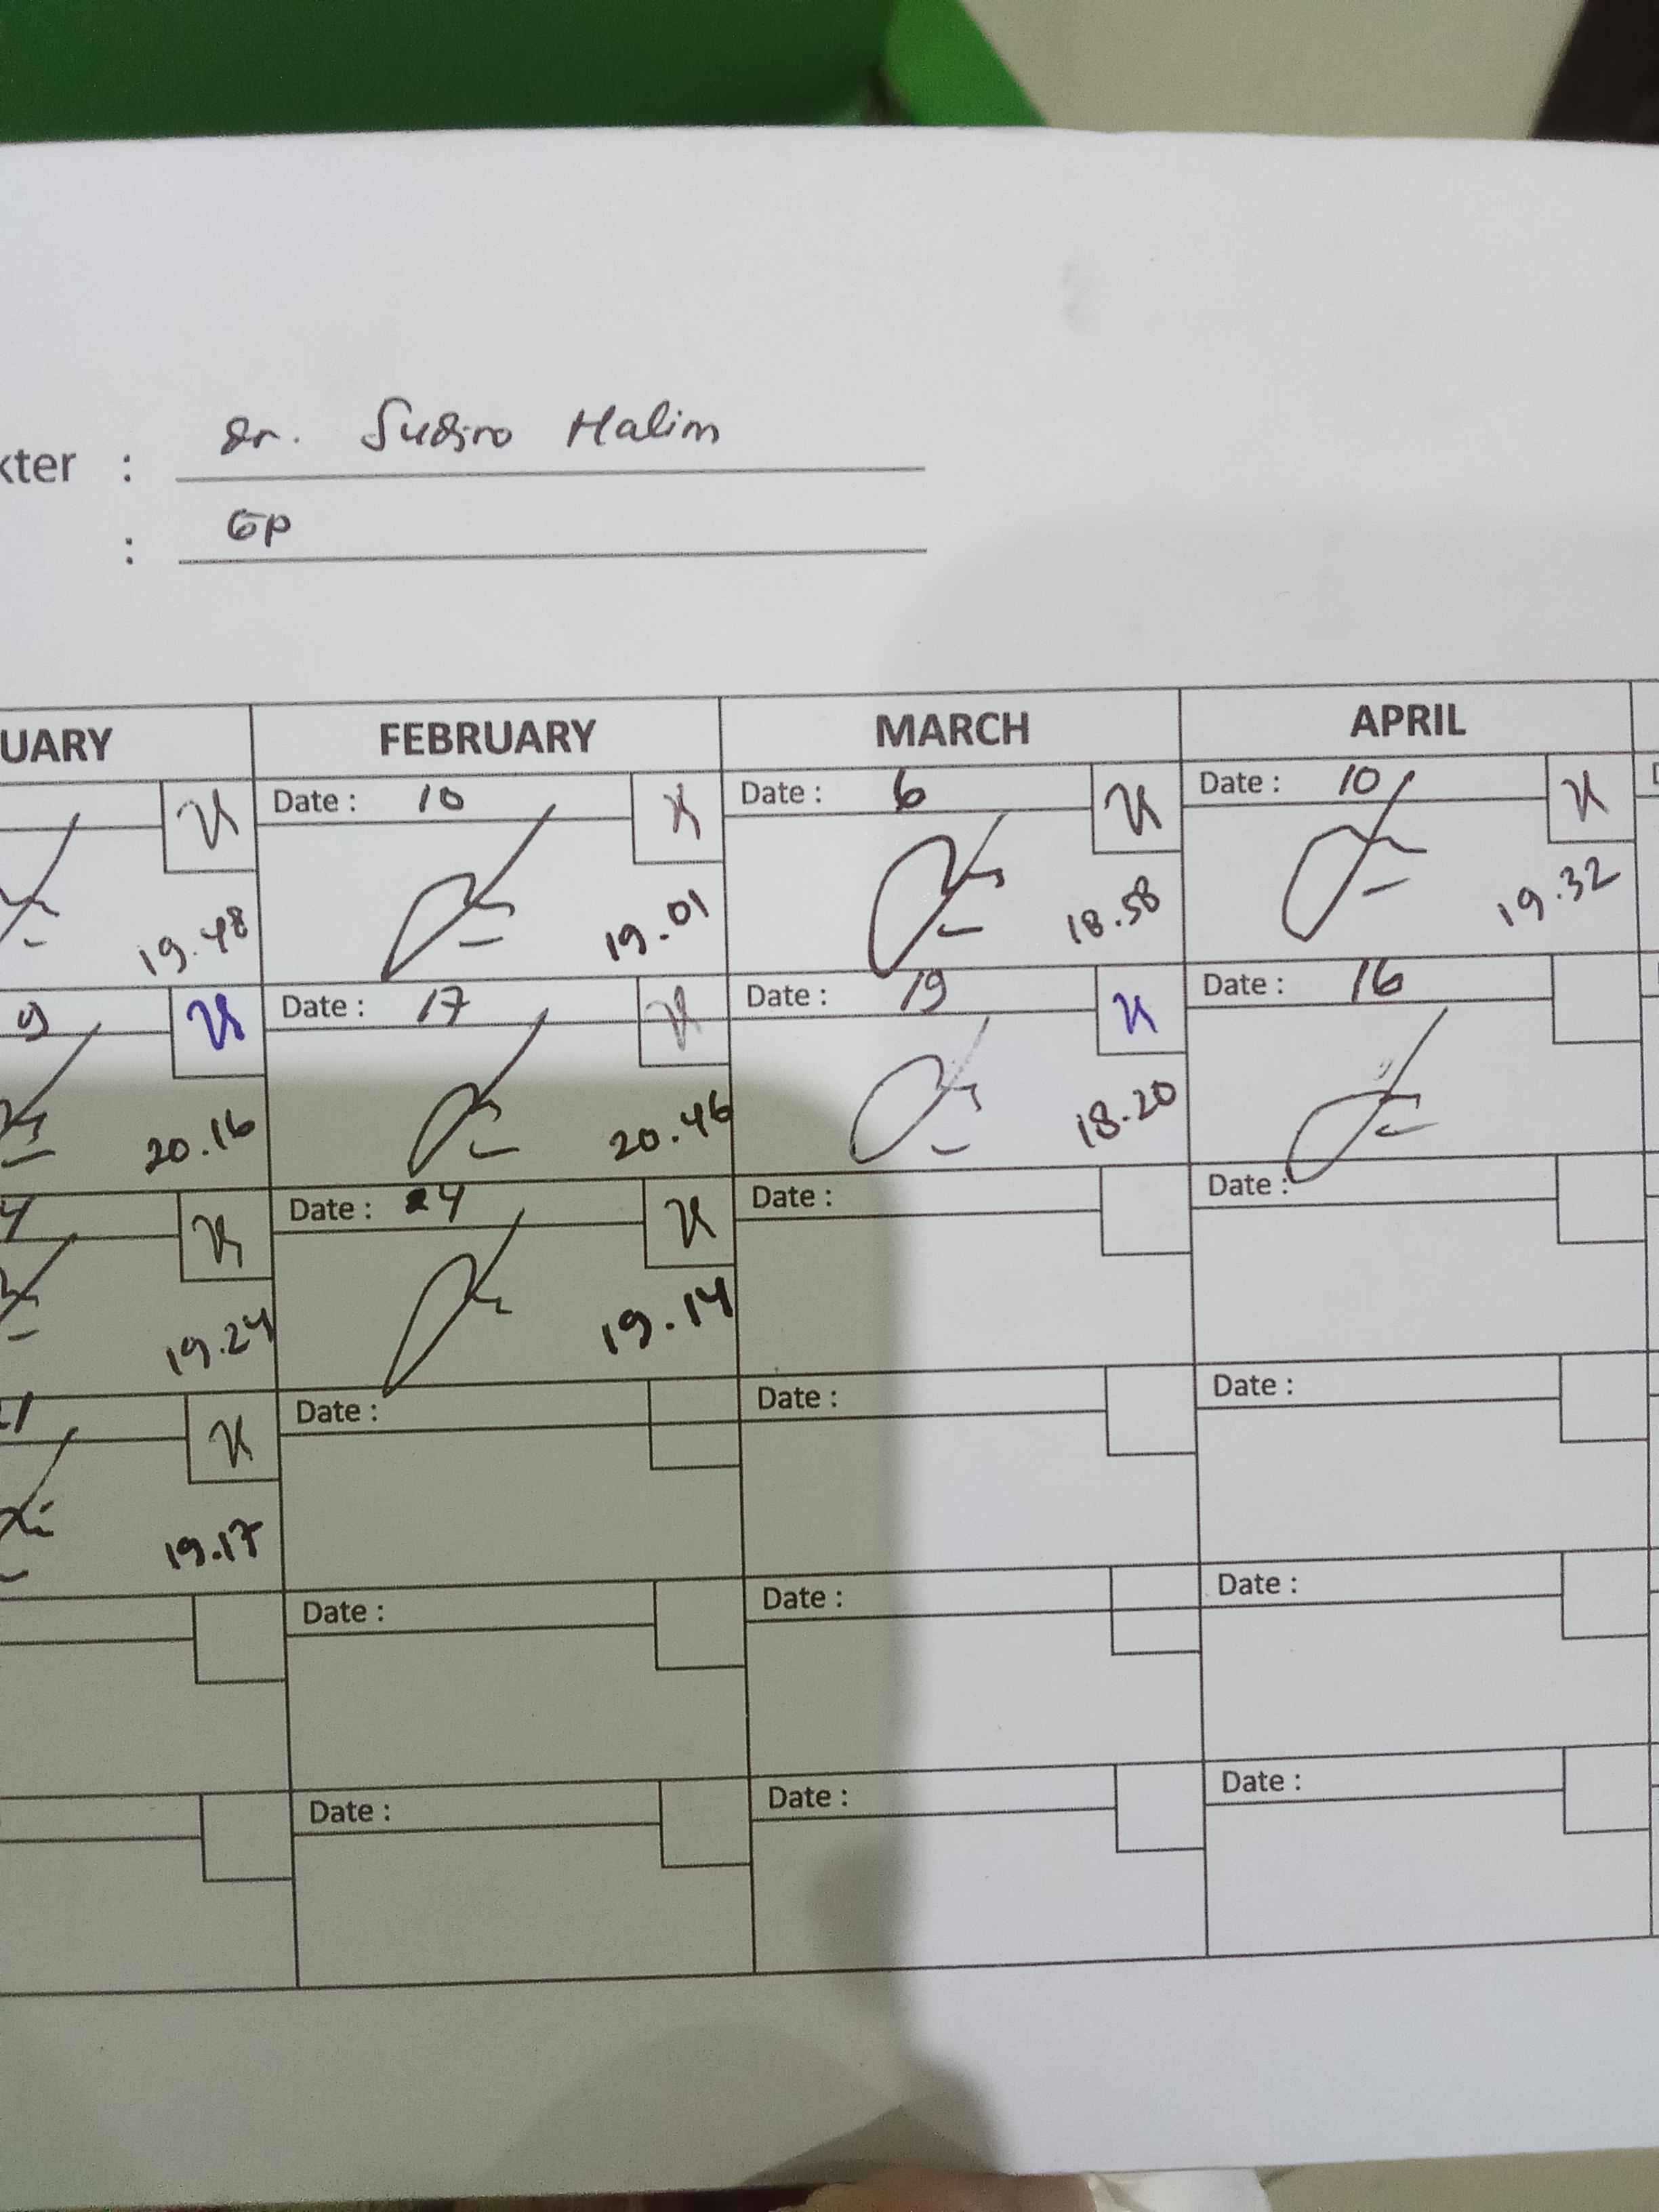 kter : dr. Sudiro Halim
: GP
UARY FEBRUARY MARCH APRIL
Date : 10 Date : 6 Date : 10
19.48 19.01 18.58 19.32
9 Date : 17 Date : 19 Date : 16
20.16 20.46 18.20
Date : 24 Date : Date :
19.24 19.14
Date : Date : Date :
19.17
Date : Date : Date :
Date : Date : Date :